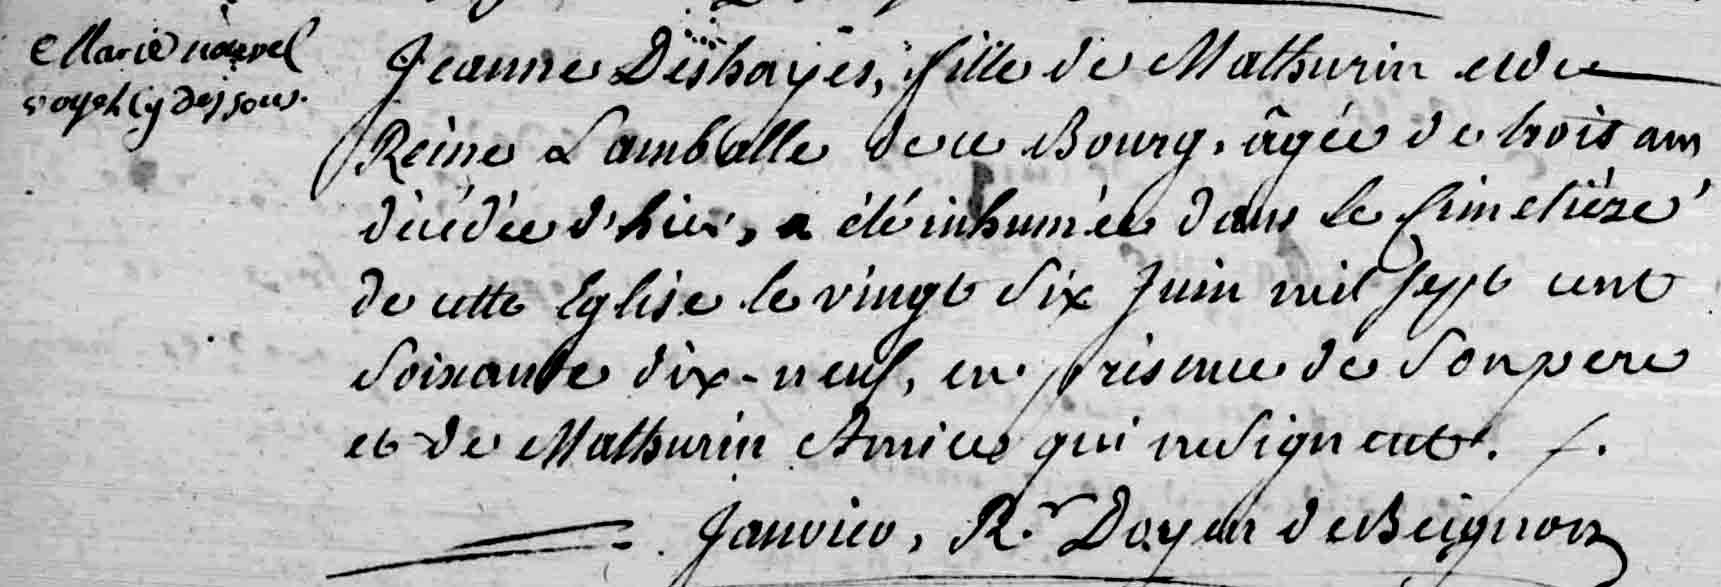 Marie nouvel
voyez cy dessous.
Jeanne Deshayes, fille de Mathurin et de
Reine Lamballe de ce Bourg, âgée de trois ans
décédée d'hier, a été inhumée dans le Cimetière
de cette Eglise le vingt six Juin mil sept cent
soixante dix-neuf, en présence de son pere
et de Mathurin Amice qui ne signent.
Janvier, R.r Doyen de Beignon